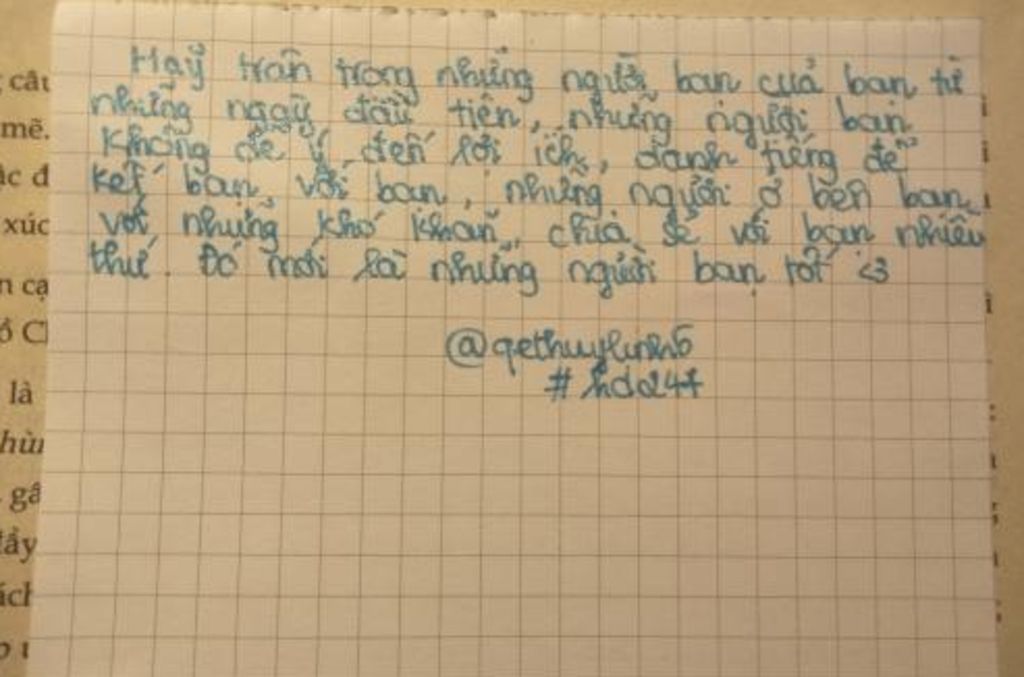 Hãy trân trọng những người bạn của bạn từ
những ngày đầu tiên, những người bạn
không để ý đến lợi ích, danh tiếng để
kết bạn với bạn, những người ở bên bạn
với những khó khăn, chia sẻ với bạn nhiều
thứ. Đó mới là những người bạn tốt <3
@qethuylinh6
#hda247
câu
mẽ.
ác đ
xúc
n cạ
ồ Cl
là
hùn
gầ
đầy
ách